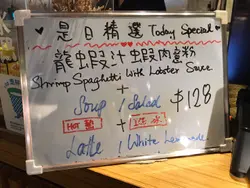 是日精選 Today Special
龍蝦汁蝦肉意粉
Shrimp Spaghetti With Lobster Sauce
+
Soup / Salad $128
HOT 熱 + ICE 冰
Latte / White Lemonade